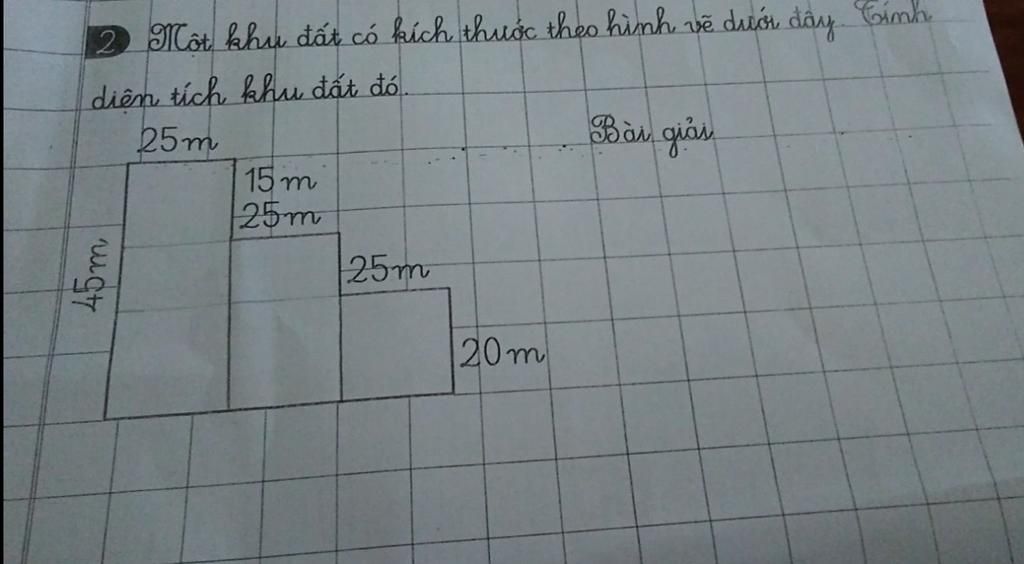 2 Một khu đất có kích thước theo hình vẽ dưới đây. Tính
diện tích khu đất đó.
Bài giải
25m
15m
25m
25m
45m
20m